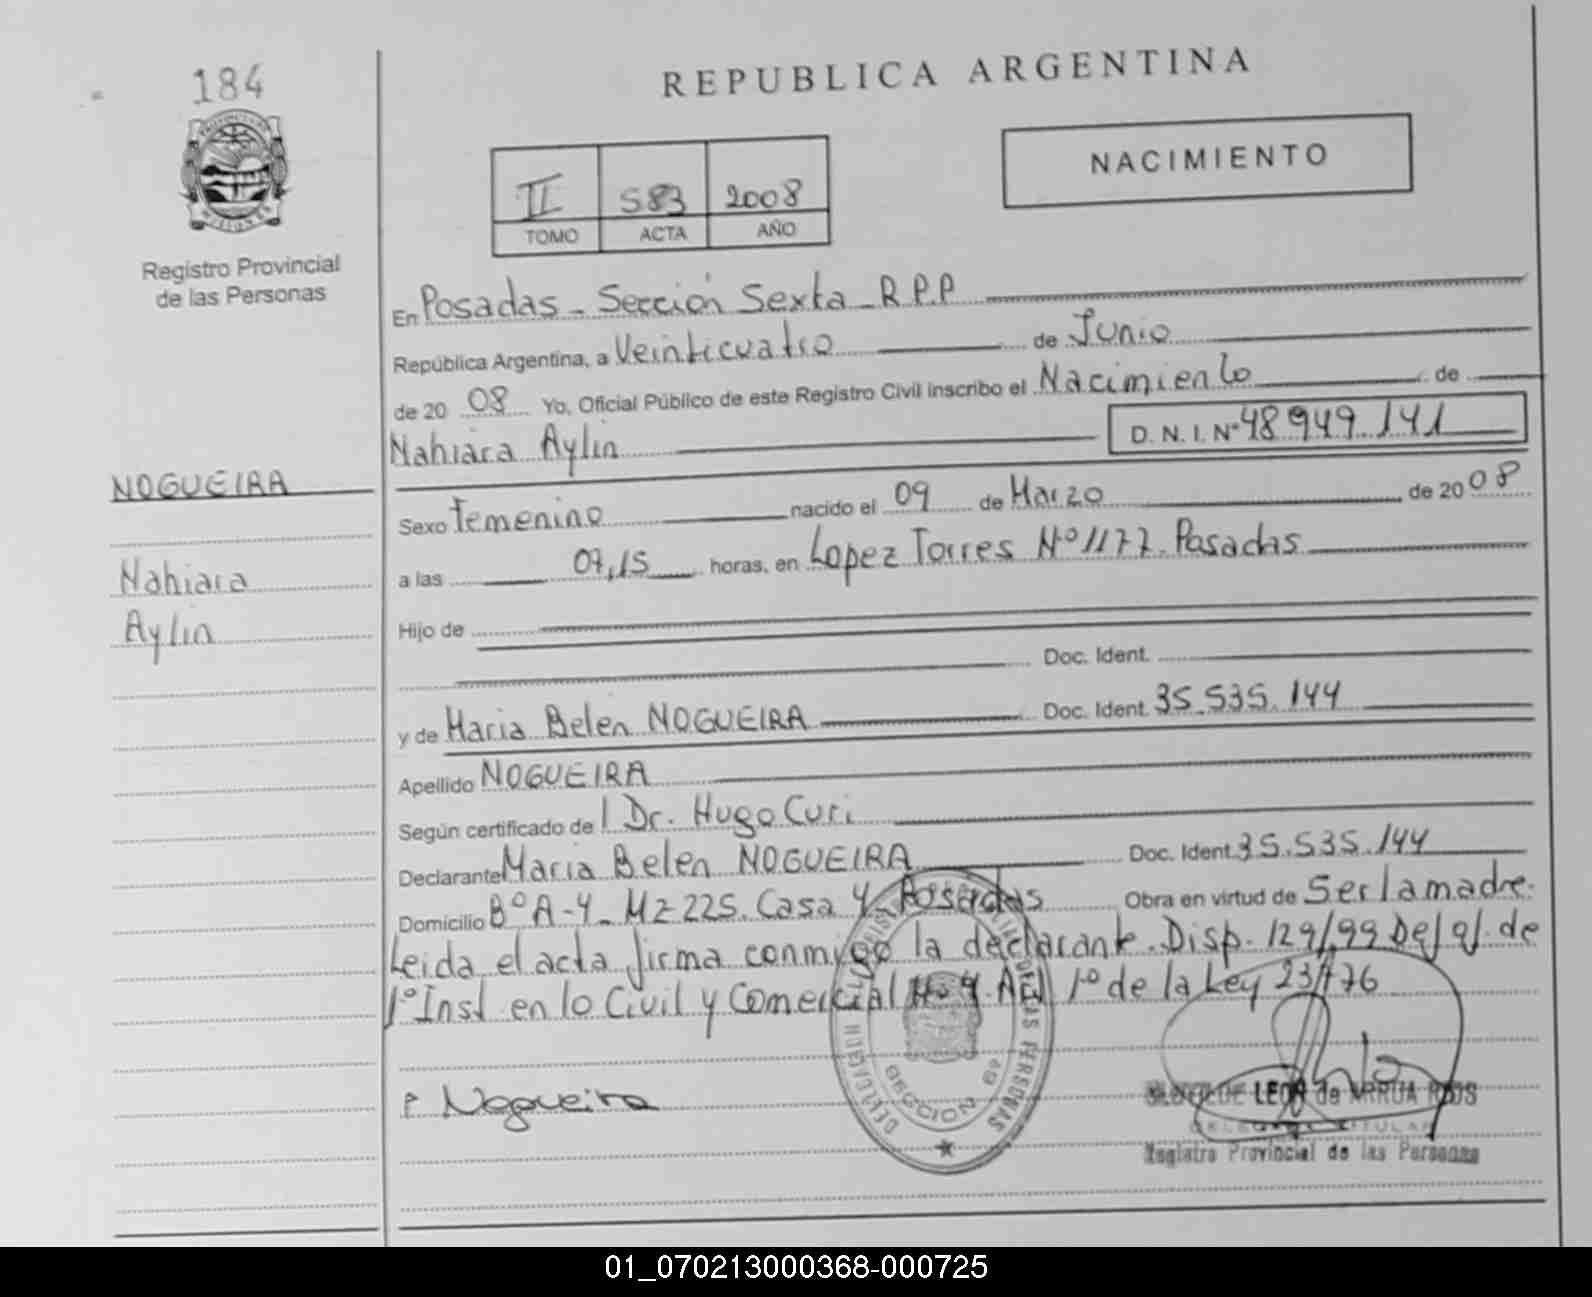 184
REPUBLICA ARGENTINA
NACIMIENTO
II 583 2008
TOMO ACTA AÑO
Registro Provincial
de las Personas
En Posadas - Sección Sexta - R.P.P
República Argentina, a Veinticuatro de Junio
de 20 08 Yo, Oficial Público de este Registro Civil inscribo el Nacimiento de
Nahiara Aylin D. N. I. N° 48 949 141
NOGUEIRA
Nahiara
Aylin
Sexo Femenino nacido el 09 de Marzo de 20 08
a las 07,15 horas, en Lopez Torres N° 1177. Posadas
Hijo de
Doc. Ident.
y de Maria Belen NOGUEIRA Doc. Ident. 35.535.144
Apellido NOGUEIRA
Según certificado de l Dr. Hugo Curi
Declarante Maria Belen NOGUEIRA Doc. Ident. 35.535.144
Domicilio B° A-4 - Mz 225. Casa 4 - Posadas Obra en virtud de Ser la madre.
Leida el acta firma conmigo la declarante. Disp. 129/99 Def. de
1° Inst en lo Civil y Comercial 1° de la Ley
P Nogueira
SECCION 6ª
DE LAS PERSONAS
LEON de ARRUA RIOS
DELEGADA TITULAR
Registro Provincial de las Personas
01_070213000368-000725